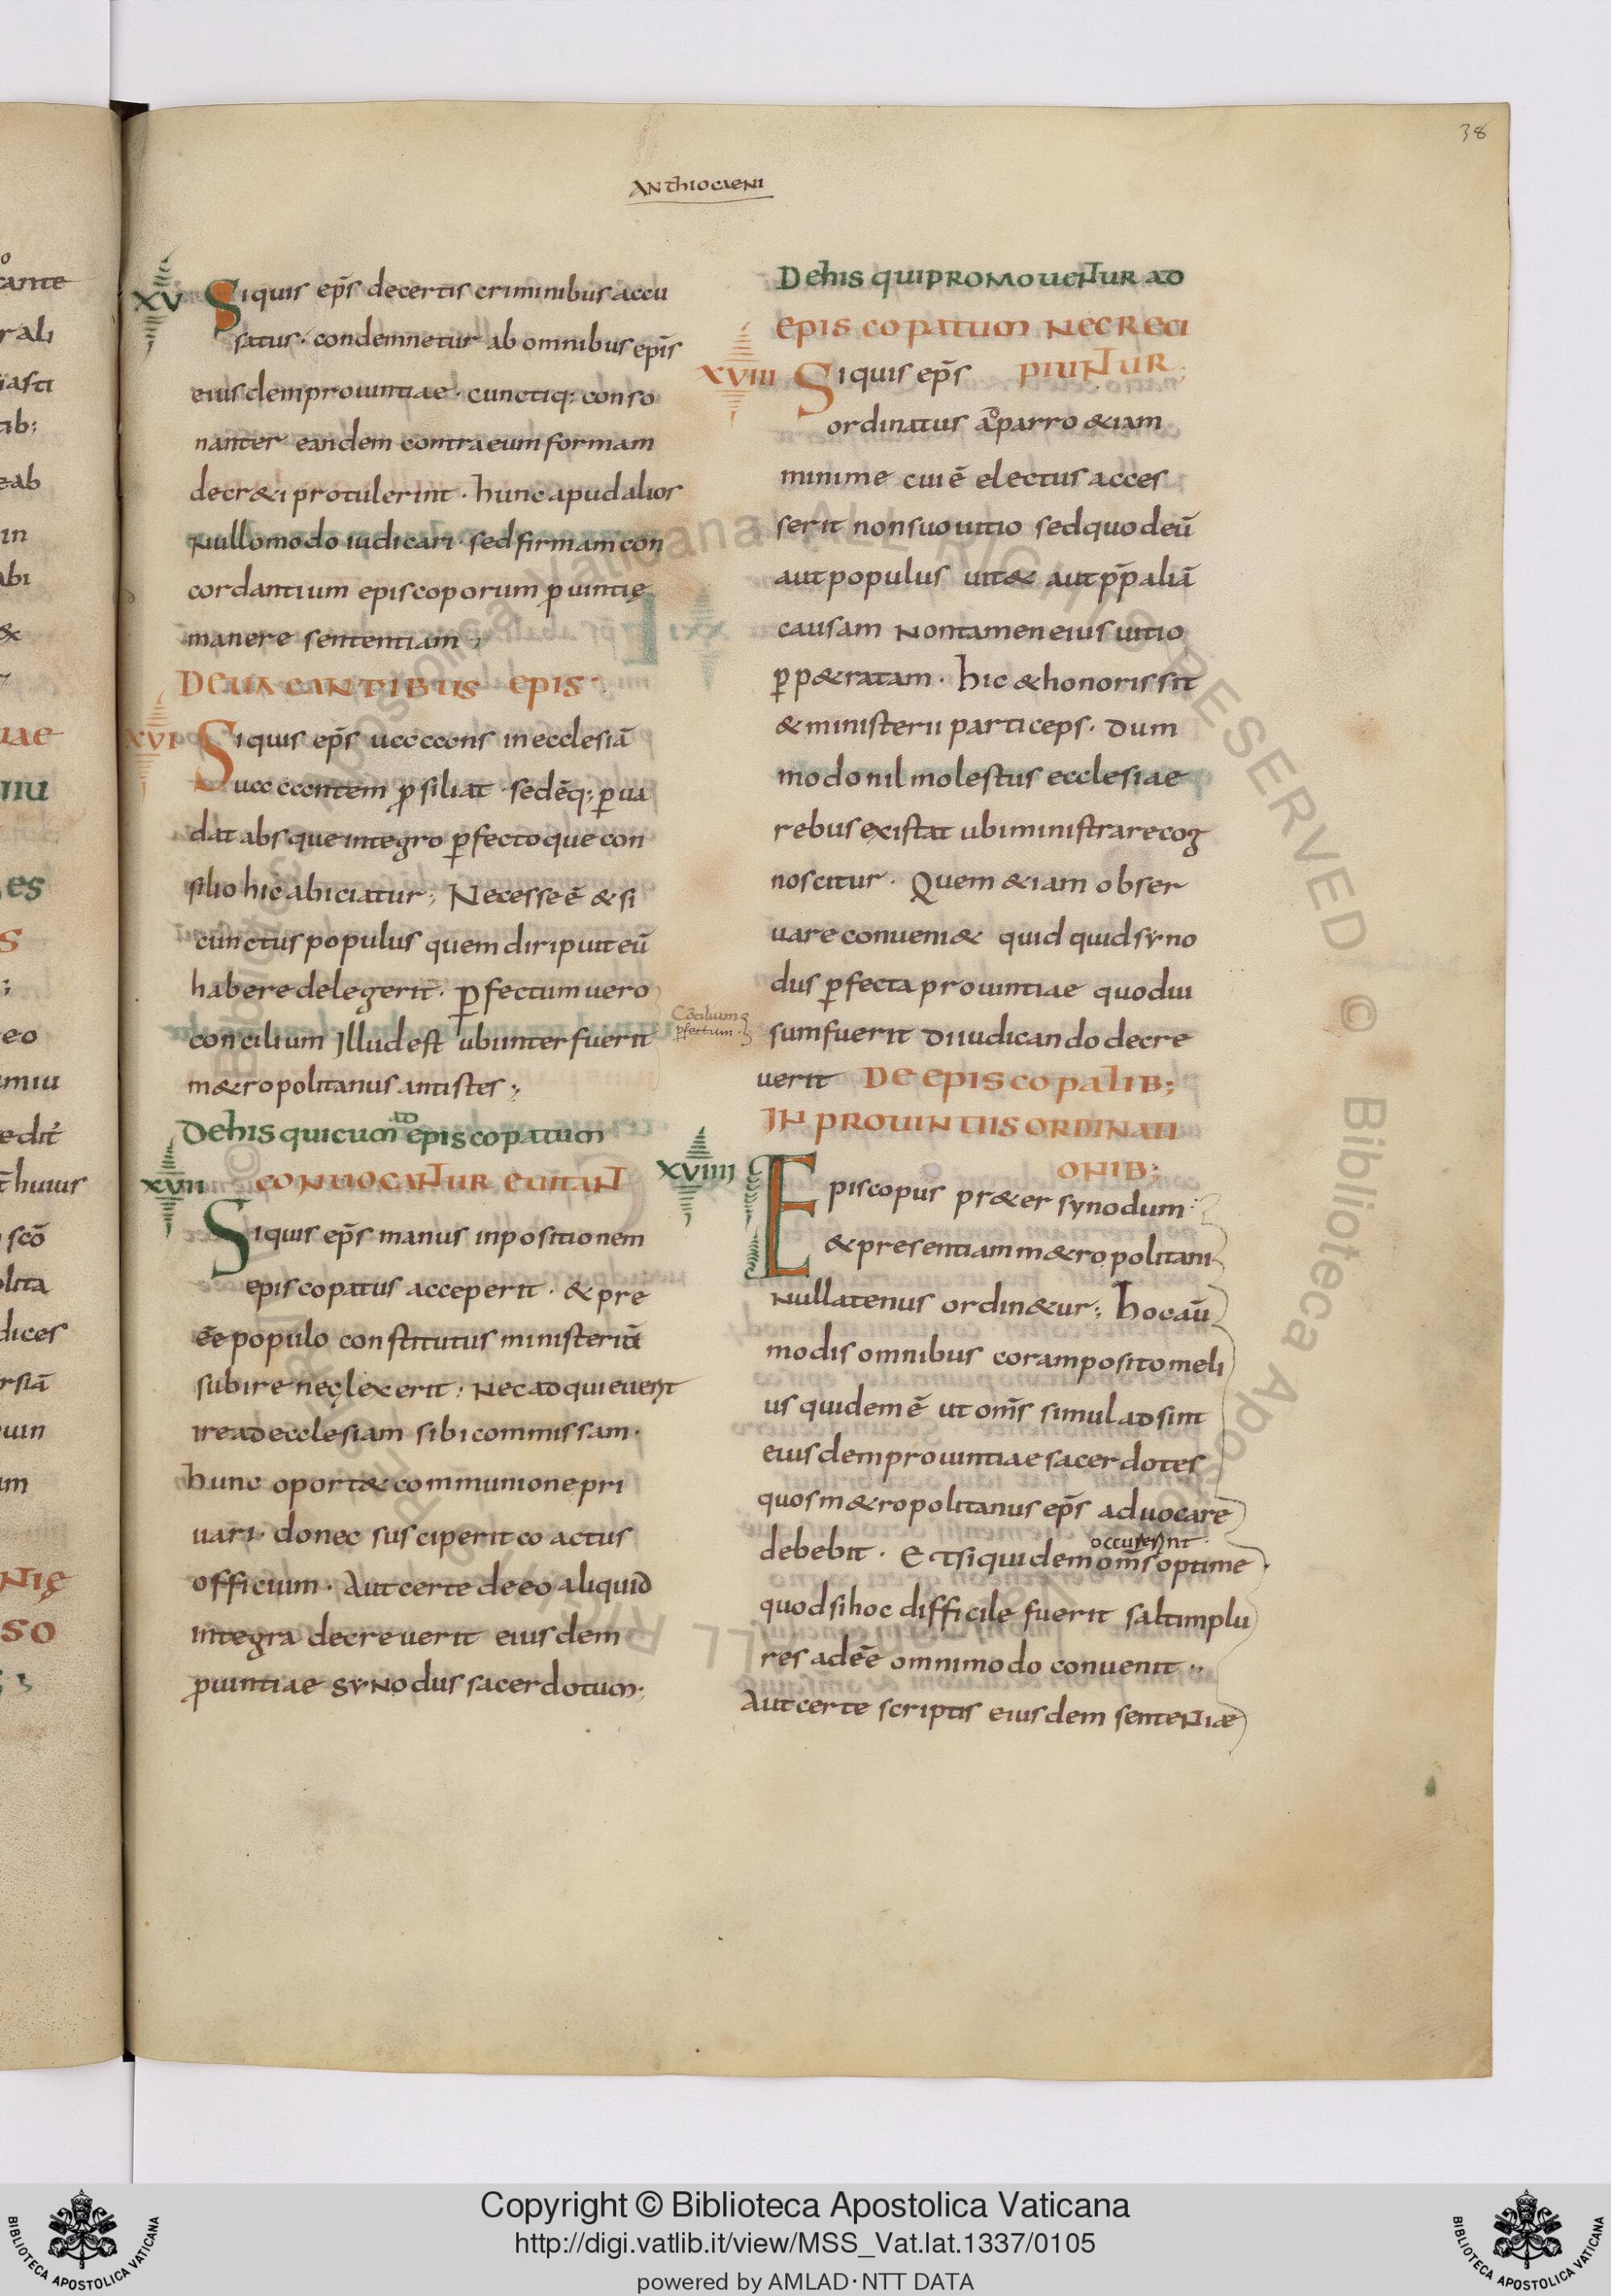 38
ANTHIOCAENI
XV Siquis ep̄s decertis criminibus accu
satus· condemnetur ab omnibus epīs
eiusdem prouintiae· cunctiq: conso
nanter eandem contra eum formam
decr&i protulerint· hunc apud alios
nullo modo iudicari· sed firmam con
cordantium episcoporum ꝓuintię
manere sententiam;
DEUACANTIBUS EPIS·
XVI Siquis ep̄s uacans in ecclesiā
uacantem ꝓsiliat sedēq; ꝑua
dat absque integro ꝑfectoque con
silio hic abiciatur; Necesse ē & si
cunctus populus quem diripuit eū
habere delegerit· ꝑfectum uero
concilium Illud est ubi interfuerit
m&ropolitanus antistes;
Cōciliumq
ꝑfectum·
Dehis quicum ad episcopatum
XVII CONUOCANTUR EUITANT
Siquis ep̄s manus inpositionem
episcopatus acceperit· & pre
ēe populo constitutus ministeriū
subire neglexerit; Nec adquieuerit
ire ad ecclesiam sibi commissam·
hunc oport& communione pri
uari· donec susciperit coactus
officium· Aut certe de eo aliquid
integra decreuerit eiusdem
ꝓuintiae synodus sacerdotum;
Dehis qui PROMOUENTUR AD
EPISCOPATUM NECRECI
PIUNTUR;
XVIII Siquis ep̄s
ordinatus a parro &iam
minime cui ē electus acces
serit non suo uitio sed quod eū
aut populus uit& aut pp̄ aliā
causam Non tamen eius uitio
ꝑp&ratam· hic & honoris sit
& ministerii particeps· Dum
modo nil molestus ecclesiae
rebus existat ubi ministrare cog
noscitur· Quem &iam obser
uare conueni& quid quid syno
dus ꝑfecta prouintiae quod ui
sum fuerit diiudicando decre
uerit DE EPISCOPALIB;
IN PROUINTIIS ORDINATI
ONIB;
XVIIII Episcopus pr&er synodum
& presentiam m&ropolitani
Nullatenus ordin&ur; hoc aū
modis omnibus coram posito meli
us quidem ē ut om̄s simul adsint
eiusdem prouintiae sacerdotes
quos m&ropolitanus ep̄s aduocare
debebit· Et siquidem om̄s occurrerint optime·
quod si hoc difficile fuerit saltim plu
res adeē omnimodo conuenit·
Aut certe scriptis eiusdem senteNiæ
Copyright © Biblioteca Apostolica Vaticana
http://digi.vatlib.it/view/MSS_Vat.lat.1337/0105
powered by AMLAD·NTT DATA
BIBLIOTECA APOSTOLICA VATICANA
BIBLIOTECA APOSTOLICA VATICANA